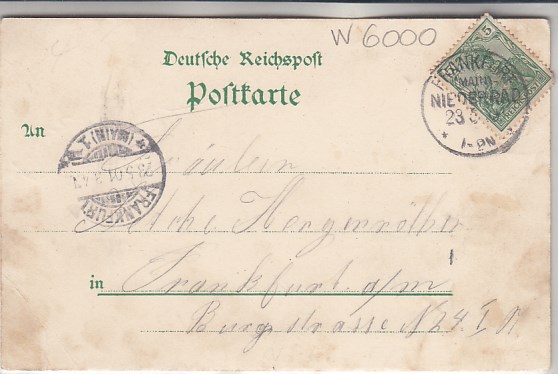 W 6000
Deutsche Reichspost
Postkarte
5
FRANKFURT
(MAIN)
NIEDERRAD
23 5
* 1-2N *
An
Fräulein
* (MAIN) 1 *
23.5.01.
FRANKFURT
Hergenröther
in Frankfurt a/m
Burgstrasse N 24. I